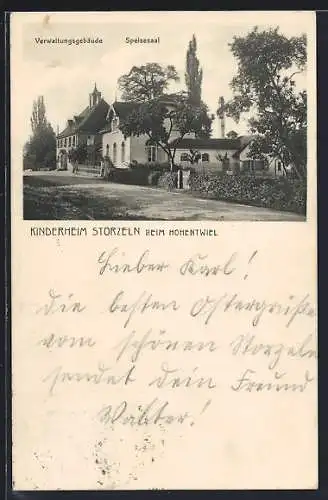 Verwaltungsgebäude Speisesaal
KINDERHEIM STORZELN BEIM HOHENTWIEL
Lieber Karl!
Die besten Ostergrüße
vom schönen Storzeln
sendet dein Freund
Walter!